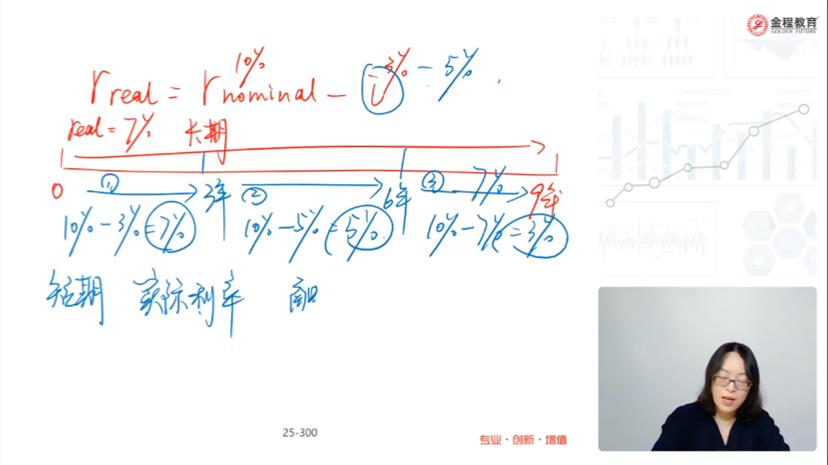 金程教育
GOLDEN FUTURE
10% 3% - 5%
r real = r nominal - i
real = 7% 长期
① ② ③ 7%
0 3年 6年 9年
10%-3%=7% 10%-5%=5% 10%-7%=3%
短期 实际利率
25-300
专业·创新·增值